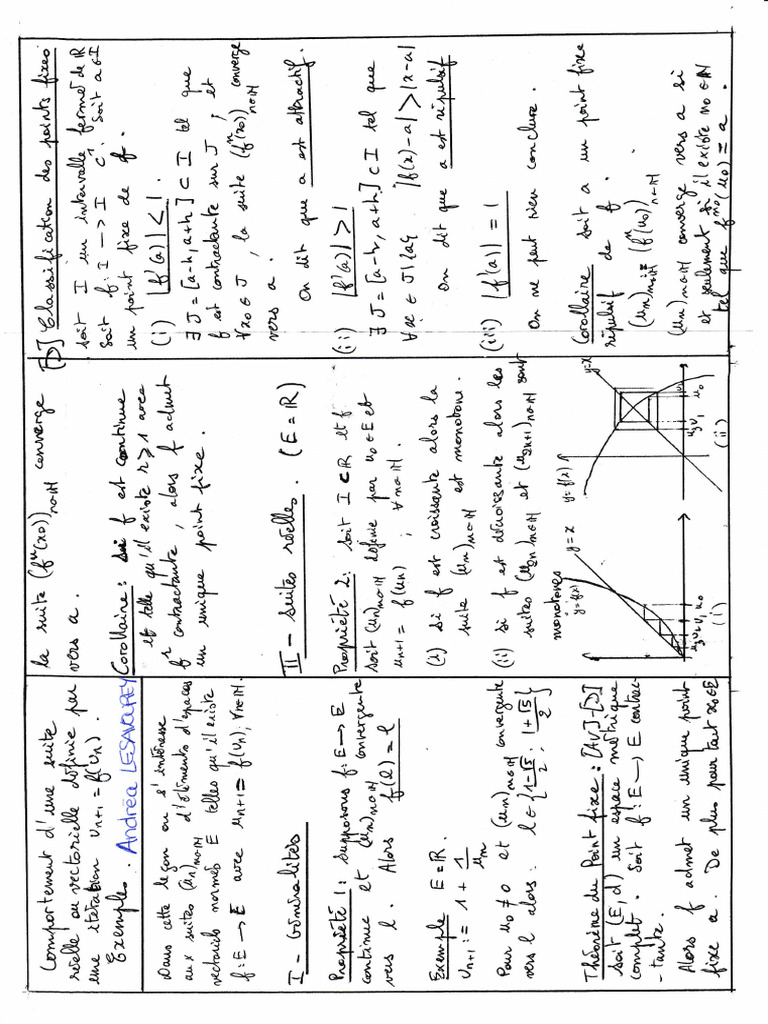 Comportement d'une suite
réelle ou vectorielle définie par
une itération u_{n+1} = f(u_n).
Exemples.
Andréa LESAVOUREY
Dans cette leçon on s'intéresse
aux suites (u_n)_{n∈ℕ} d'éléments d'espaces
vectoriels normés E telles qu'il existe
f: E → E avec u_{n+1} = f(u_n), ∀n∈ℕ.
I - Généralités
Propriété 1: Supposons f: E → E
continue et (u_n)_{n∈ℕ} convergente
vers l. Alors f(l) = l
Exemple E = ℝ.
u_{n+1} := 1 + 1/u_n
Pour u_0 ≠ 0 et (u_n)_{n∈ℕ} convergente
vers l alors: l ∈ {(1-√5)/2 ; (1+√5)/2}
Théorème du Point fixe: [AV]-[D]
Soit (E, d) un espace métrique
complet. Soit f: E → E contrac-
-tante.
Alors f admet un unique point
fixe a. De plus pour tout x_0∈E
la suite (f^n(x_0))_{n∈ℕ} converge
vers a.
Corollaire: Si f est continue
et telle qu'il existe r ≥ 1 avec
f^r contractante, alors f admet
un unique point fixe.
II - Suites réelles. (E = ℝ)
Propriété 2: Soit I ⊂ ℝ et f
soit (u_n)_{n∈ℕ} définie par u_0 ∈ E et
u_{n+1} = f(u_n) ; ∀n∈ℕ.
(i) Si f est croissante alors la
suite (u_n)_{n∈ℕ} est monotone.
(ii) Si f est décroissante alors les
suites (u_{2n})_{n∈ℕ} et (u_{2n+1})_{n∈ℕ} sont
monotones
y=f(x)
y=x
u_2 u_1 u_0
(i)
y=f(x)
y=x
u_3 u_1 u_2 u_0
(ii)
[D] Classification des points fixes
Soit I un intervalle fermé de ℝ
Soit f: I → I C^1. Soit a∈I
un point fixe de f.
(i) |f'(a)| < 1.
∃ J = [a-h, a+h] ⊂ I tel que
f est contractante sur J, et
∀x_0 ∈ J, la suite (f^n(x_0))_{n∈ℕ} converge
vers a.
On dit que a est attractif.
(ii) |f'(a)| > 1
∃ J = [a-h, a+h] ⊂ I tel que
∀x ∈ J\{a}, |f(x)-a| > |x-a|
On dit que a est répulsif
(iii) |f'(a)| = 1
On ne peut rien conclure.
Corollaire Soit a un point fixe
répulsif de f.
(u_n)_{n∈ℕ} := (f^n(u_0))_{n∈ℕ}
(u_n)_{n∈ℕ} converge vers a si
et seulement si il existe n_0 ∈ ℕ
tel que f^{n_0}(u_0) = a.